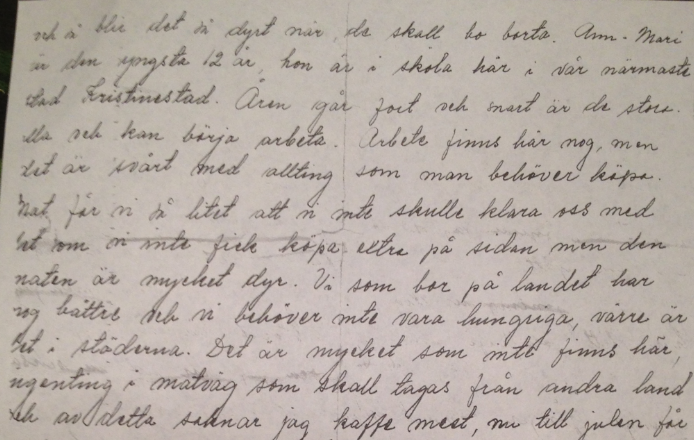 och så blir det så dyrt när de skall bo borta. Ann-Mari
är den yngsta 12 år, hon är i skola här i vår närmaste
stad Kristinestad. Åren går fort och snart är de stora
alla och kan börja arbeta. Arbete finns här nog, men
det är svårt med allting som man behöver köpa.
Mat får vi så litet att vi inte skulle klara oss med
det om vi inte fick köpa extra på sidan men den
maten är mycket dyr. Vi som bor på landet har
nog bättre och vi behöver inte vara hungriga, värre är
det i städerna. Det är mycket som inte finns här,
ingenting i matväg som skall tagas från andra land
och av detta saknar jag kaffe mest, nu till julen får